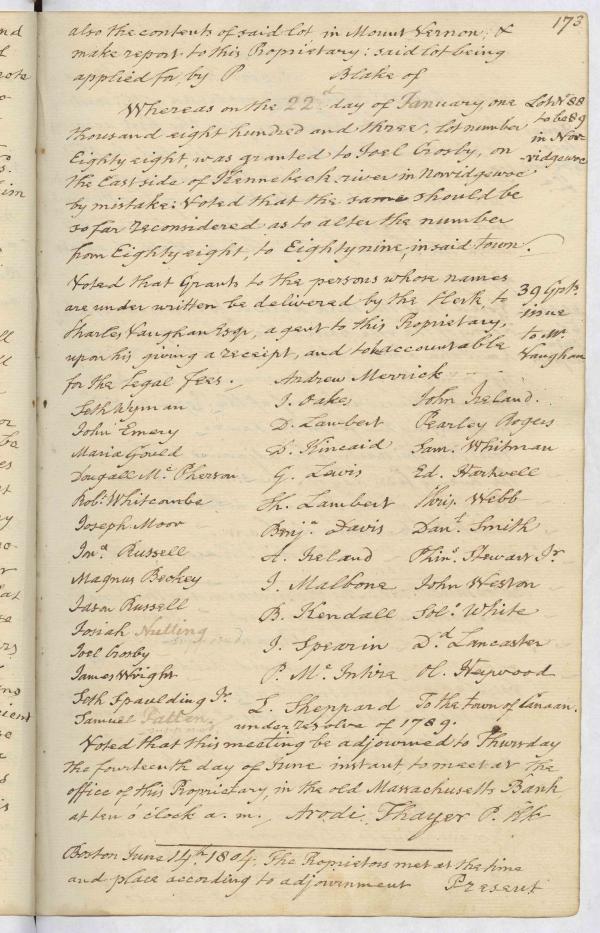 173
also the contents of said lot in Mount Vernon; &
make report to this Proprietary: said lot being
applied for, by P Blake of
Whereas on the 22d day of January one
thousand eight hundred and three, lot number
Eighty eight, was granted to Joel Crosby, on
the East side of Kennebeck river in Noridgewoc
by mistake: Voted that the same should be
so far reconsidered as to alter the number
from Eighty eight, to Eighty nine, in said town.
Lot No 88
to be 89
in Nor-
ridgewoc
Voted that Grants to the persons whose names
are under written be delivered by the Clerk, to
Charles Vaughan Esqr, agent to this Proprietary,
upon his giving a receipt, and to be accountable
for the Legal fees.
39 Grts.
issue
to Mr
Vaughan
Andrew Merrick
Seth Wyman J. Oakes John Ireland.
John Emery D. Lambert Pearley Rogers
Maria Gould D. Kincaid Sam. Whitman
Dougall Mc Pherson G. Lewis Ed. Hartwell
Robt. Whitcombe Th. Lambert Chris. Webb
Joseph Moor Benja Davis Danl. Smith
Jna Russell A. Ireland Phins. Stewart Jr.
Magnus Beckey J. Malbone John Weston
Jason Russell B. Kendall Sol. White
Josiah Nutting J. Spearin Dd Lancaster
Joel Crosby P. Mc Intire Ol. Heywood
James Wright
Seth Spaulding Jr. L. Sheppard To the town of Canaan.
Samuel Patten under resolve of 1789.
Voted that this meeting be adjourned to Thursday
the fourteenth day of June instant, to meet at the
office of this Proprietary, in the old Massachusetts Bank
at ten o'clock a.m. Arodi Thayer P. Clk
Boston June 14th 1804. The Proprietors met at the time
and place according to adjournment Present